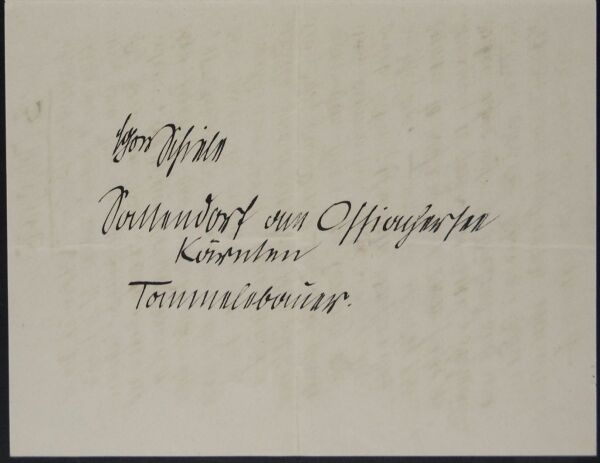 Egon Schiele
Sattendorf am Ossiachersee
Kärnten
Tammelebauer.